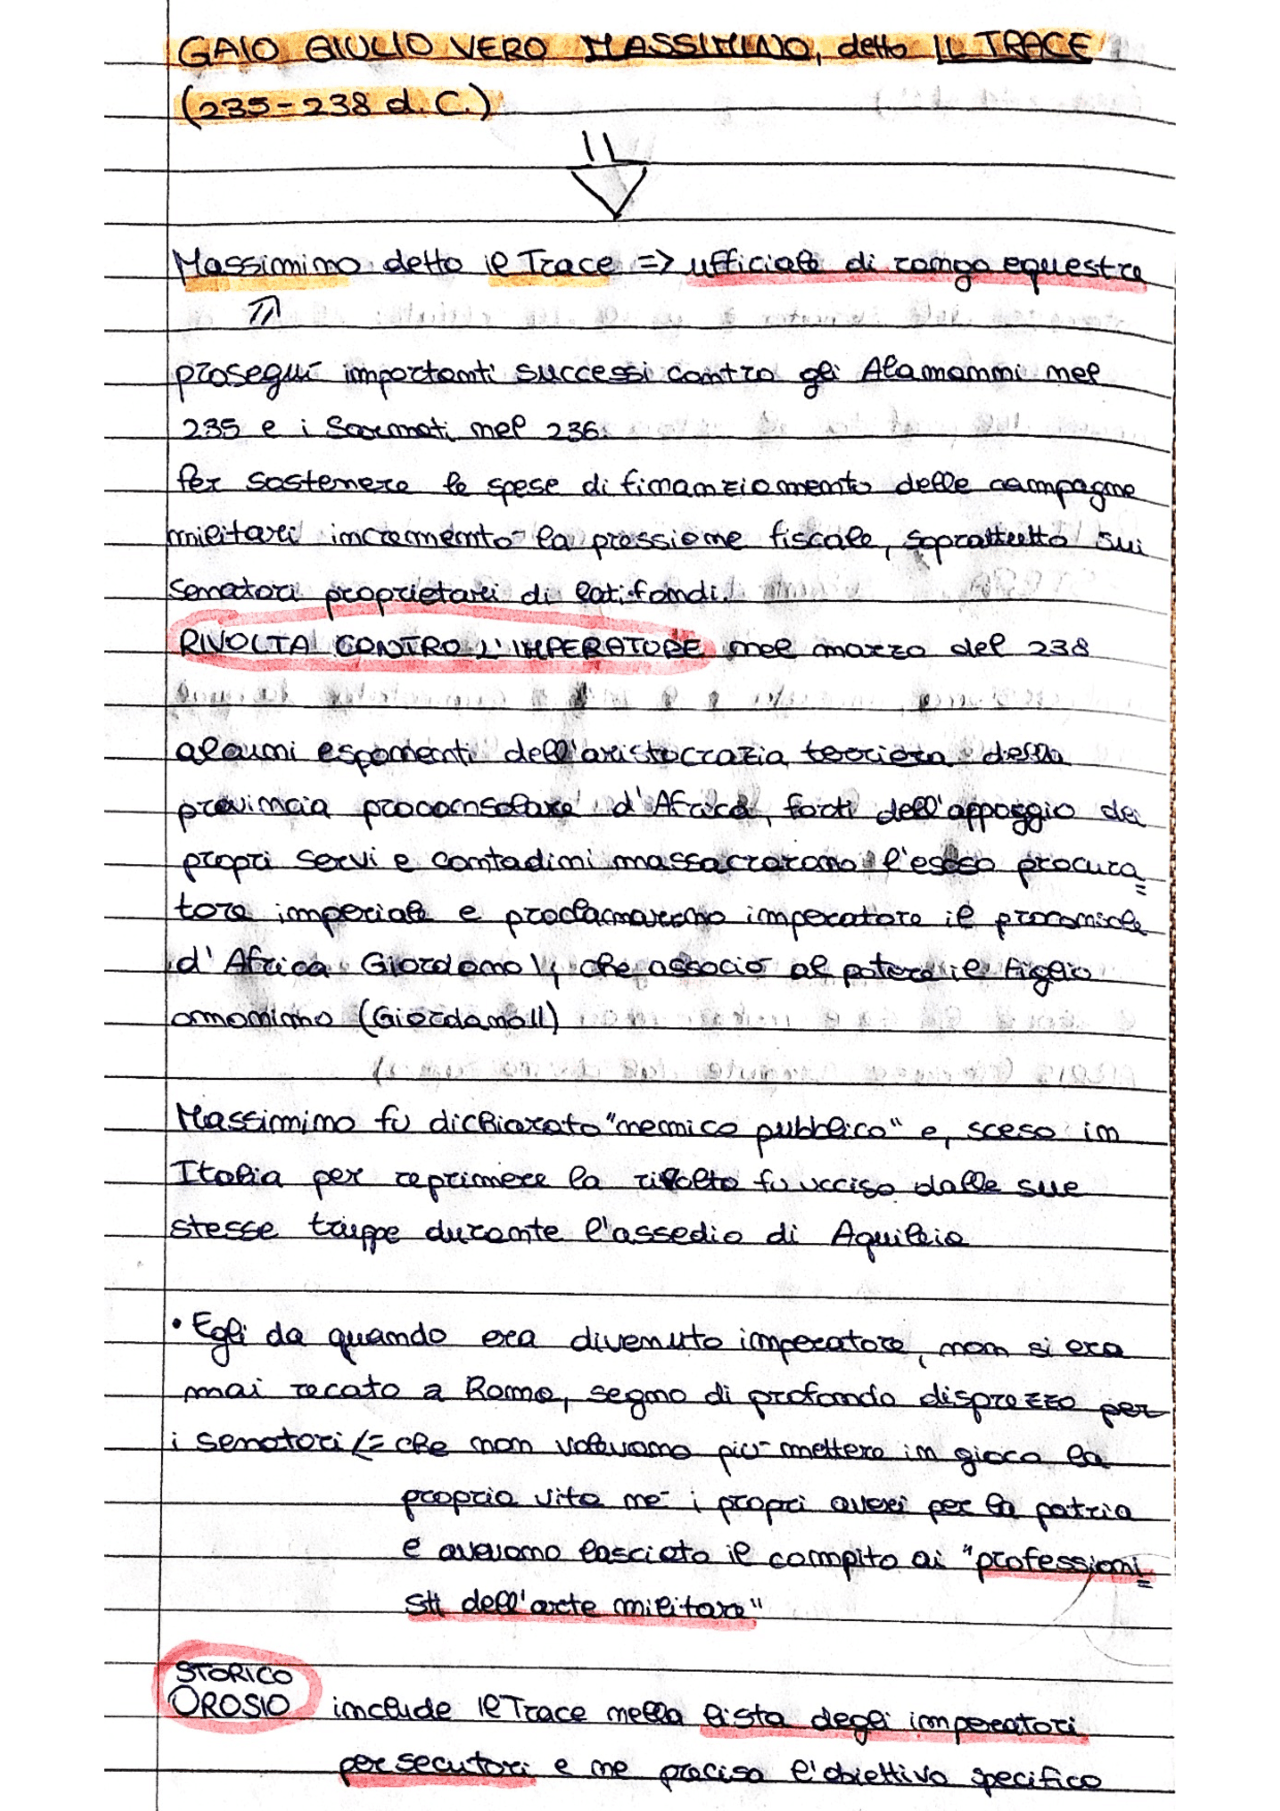 GAIO GIULIO VERO MASSIMINO, detto IL TRACE
(235-238 d.C.)
Massimino detto il Trace => ufficiale di rango equestre
proseguì importanti successi contro gli Alamanni nel
235 e i Sarmati nel 236.
Per sostenere le spese di finanziamento delle campagne
militari incrementò la pressione fiscale, soprattutto sui
senatori proprietari di latifondi.
RIVOLTA CONTRO L'IMPERATORE nel marzo del 238
alcuni esponenti dell'aristocrazia terriera della
provincia proconsolare d'Africa, forti dell'appoggio dei
propri servi e contadini massacrarono l'esoso procura=
tore imperiale e proclamarono imperatore il proconsole
d'Africa Giordano I, che associò al potere il figlio
omonimo (Giordano II)
Massimino fu dichiarato "nemico pubblico" e, sceso in
Italia per reprimere la rivolta fu ucciso dalle sue
stesse truppe durante l'assedio di Aquileia
• Egli da quando era divenuto imperatore, non si era
mai recato a Roma, segno di profondo disprezzo per
i senatori <= che non volevano più mettere in gioco la
propria vita né i propri averi per la patria
e avevano lasciato il compito ai "professioni=
sti dell'arte militare"
STORICO
OROSIO include il Trace nella lista degli imperatori
persecutori e ne precisa l'obiettivo specifico